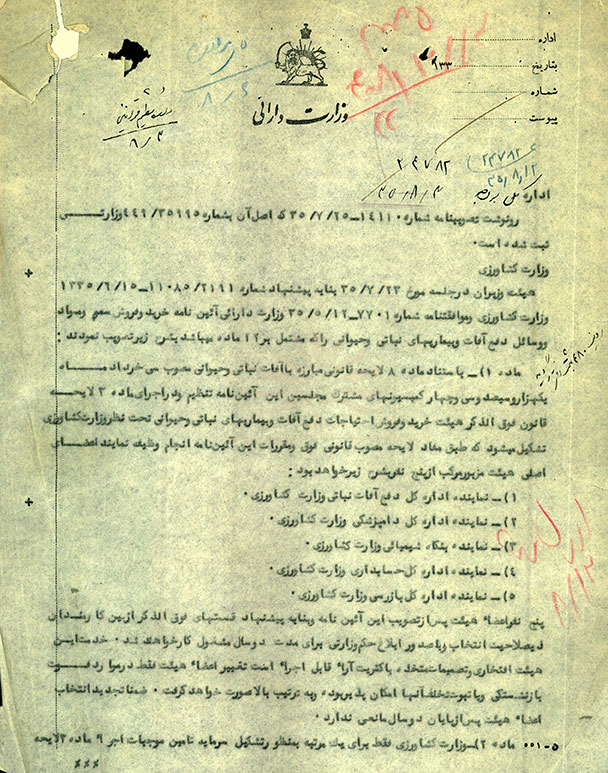 اداره
بتاریخ ۱۳۳
شماره
پیوست
وزارت دارائی
۲۴۷۸۲
۳۵/۸/۲
اداره کل
رونوشت تصویبنامه شماره ۱۴۱۱۰-۳۵/۷/۲۵ که اصل آن بشماره ۴۴۹/۳۵۱۹۵ وزارتی
ثبت شده است.
وزارت کشاورزی
هیئت وزیران در جلسه مورخ ۳۵/۷/۲۳ بنابه پیشنهاد شماره ۱۱۰۸۵/۲۱۹۱-۱۳۳۵/۶/۱۵
وزارت کشاورزی و موافقتنامه شماره ۷۷۰۱-۳۵/۵/۱۲ وزارت دارائی آئین نامه خرید و فروش سموم و مواد
و وسائل دفع آفات و بیماریهای نباتی و حیوانی را که مشتمل بر ۱۲ ماده میباشد بشرح زیر تصویب نمودند:
ماده ۱)- باستناد ماده ۸ لایحه قانونی مبارزه با آفات نباتی و حیوانی مصوب سی خرداد ماه
یکهزار و سیصد و سی و چهار کمیسیونهای مشترک مجلسین این آئین نامه تنظیم و در اجرای ماده ۳ لایحه
قانون فوق الذکر هیئت خرید و فروش احتیاجات دفع آفات و بیماریهای نباتی و حیوانی تحت نظر وزارت کشاورزی
تشکیل میشود که طبق مفاد لایحه مصوب قانونی فوق و مقررات این آئین نامه انجام وظیفه نماید اعضای
اصلی هیئت مزبور مرکب از پنج نفر بشرح زیر خواهد بود:
۱)- نماینده اداره کل دفع آفات نباتی وزارت کشاورزی.
۲)- نماینده اداره کل دامپزشکی وزارت کشاورزی.
۳)- نماینده بنگاه شیمیائی وزارت کشاورزی.
۴)- نماینده اداره کل حسابداری وزارت کشاورزی.
۵)- نماینده اداره کل بازرسی وزارت کشاورزی.
پنج نفر اعضاء هیئت پس از تصویب این آئین نامه و بنابه پیشنهاد قسمتهای فوق الذکر از بین کارمندان
ذیصلاحیت انتخاب و با صدور ابلاغ حکم وزارتی برای مدت دو سال مشغول کار خواهند شد. خدمت این
هیئت افتخاری و تصمیمات متخذه باکثریت آراء قابل اجراء است تغییر اعضاء هیئت فقط در موارد فوت
بازنشستگی و یا ثبوت تخلف آنها امکان پذیر بوده و به ترتیب بالا صورت خواهد گرفت. ضمنا تجدید انتخاب
اعضاء هیئت پس از پایان دو سال مانعی ندارد.
۵-۰۰۱ ماده ۲)- وزارت کشاورزی فقط برای یک مرتبه بمنظور تشکیل سرمایه تامین موجبات اجراء ماده ۳ لایحه
×××